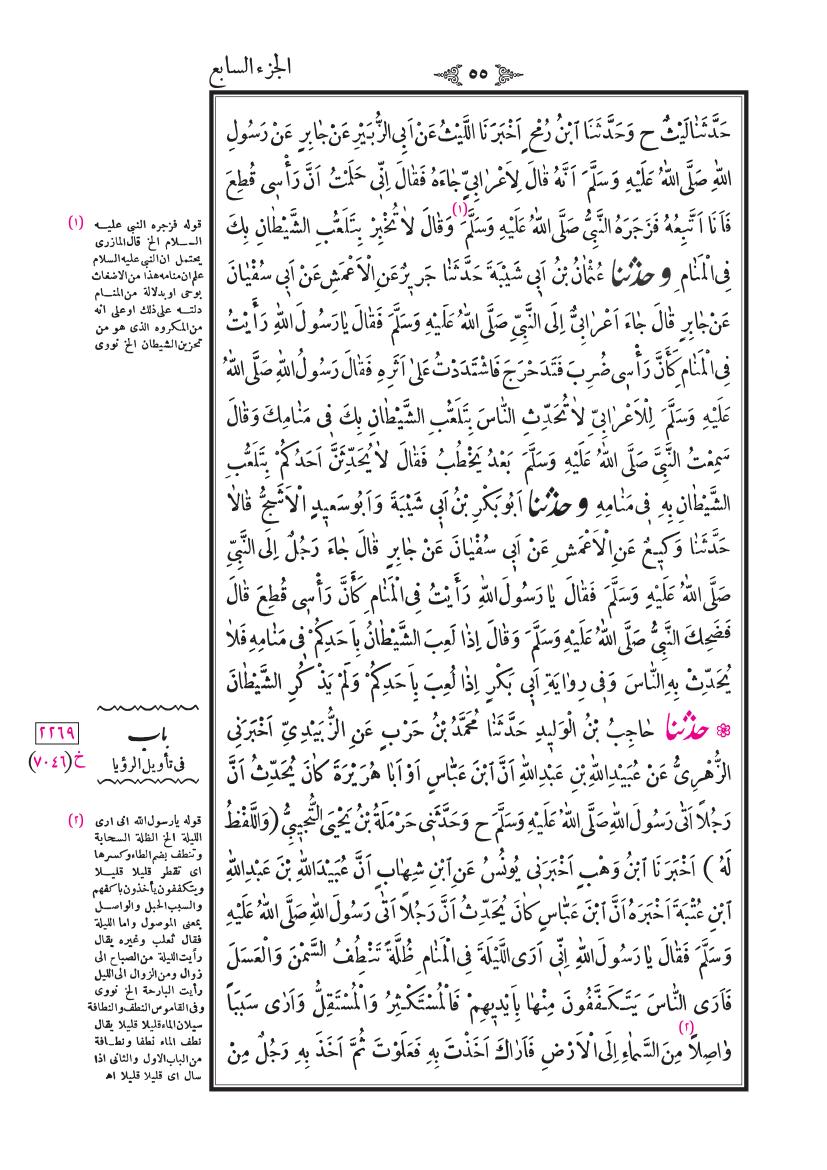 الجزء السابع
٥٥
حَدَّثَنَا لَيْثٌ ح وَحَدَّثَنَا ابْنُ رُمْحٍ اَخْبَرَنَا اللَّيْثُ عَنْ اَبِى الزُّبَيْرِ عَنْ جَابِرٍ عَنْ رَسُولِ
اللهِ صَلَّى اللهُ عَلَيْهِ وَسَلَّمَ اَنَّهُ قَالَ لِاَعْرَابِىٍّ جَاءَهُ فَقَالَ اِنِّى حَلَمْتُ اَنَّ رَأْسِى قُطِعَ
فَاَنَا اَتَّبِعُهُ فَزَجَرَهُ النَّبِىُّ صَلَّى اللهُ عَلَيْهِ وَسَلَّمَ (١) وَقَالَ لاَ تُخْبِرْ بِتَلَعُّبِ الشَّيْطَانِ بِكَ
فِى الْمَنَامِ وحدثنا عُثْمَانُ بْنُ اَبِى شَيْبَةَ حَدَّثَنَا جَرِيرٌ عَنِ الْاَعْمَشِ عَنْ اَبِى سُفْيَانَ
عَنْ جَابِرٍ قَالَ جَاءَ اَعْرَابِىٌّ اِلَى النَّبِىِّ صَلَّى اللهُ عَلَيْهِ وَسَلَّمَ فَقَالَ يَا رَسُولَ اللهِ رَأَيْتُ
فِى الْمَنَامِ كَأَنَّ رَأْسِى ضُرِبَ فَتَدَحْرَجَ فَاشْتَدَدْتُ عَلَى اَثَرِهِ فَقَالَ رَسُولُ اللهِ صَلَّى اللهُ
عَلَيْهِ وَسَلَّمَ لِلْاَعْرَابِىِّ لاَ تُحَدِّثِ النَّاسَ بِتَلَعُّبِ الشَّيْطَانِ بِكَ فِى مَنَامِكَ وَقَالَ
سَمِعْتُ النَّبِىَّ صَلَّى اللهُ عَلَيْهِ وَسَلَّمَ بَعْدُ يَخْطُبُ فَقَالَ لاَ يُحَدِّثَنَّ اَحَدُكُمْ بِتَلَعُّبِ
الشَّيْطَانِ بِهِ فِى مَنَامِهِ وحدثنا اَبُو بَكْرِ بْنُ اَبِى شَيْبَةَ وَاَبُو سَعِيدٍ الْاَشَجُّ قَالاَ
حَدَّثَنَا وَكِيعٌ عَنِ الْاَعْمَشِ عَنْ اَبِى سُفْيَانَ عَنْ جَابِرٍ قَالَ جَاءَ رَجُلٌ اِلَى النَّبِىِّ
صَلَّى اللهُ عَلَيْهِ وَسَلَّمَ فَقَالَ يَا رَسُولَ اللهِ رَأَيْتُ فِى الْمَنَامِ كَأَنَّ رَأْسِى قُطِعَ قَالَ
فَضَحِكَ النَّبِىُّ صَلَّى اللهُ عَلَيْهِ وَسَلَّمَ وَقَالَ اِذَا لَعِبَ الشَّيْطَانُ بِاَحَدِكُمْ فِى مَنَامِهِ فَلاَ
يُحَدِّثْ بِهِ النَّاسَ وَفِى رِوَايَةِ اَبِى بَكْرٍ اِذَا لُعِبَ بِاَحَدِكُمْ وَلَمْ يَذْكُرِ الشَّيْطَانَ
حدثنا حَاجِبُ بْنُ الْوَلِيدِ حَدَّثَنَا مُحَمَّدُ بْنُ حَرْبٍ عَنِ الزُّبَيْدِىِّ اَخْبَرَنِى
الزُّهْرِىُّ عَنْ عُبَيْدِ اللهِ بْنِ عَبْدِ اللهِ اَنَّ ابْنَ عَبَّاسٍ اَوْ اَبَا هُرَيْرَةَ كَانَ يُحَدِّثُ اَنَّ
رَجُلاً اَتَى رَسُولَ اللهِ صَلَّى اللهُ عَلَيْهِ وَسَلَّمَ ح وَحَدَّثَنِى حَرْمَلَةُ بْنُ يَحْيَى التُّجِيبِىُّ (وَاللَّفْظُ
لَهُ) اَخْبَرَنَا ابْنُ وَهْبٍ اَخْبَرَنِى يُونُسُ عَنِ ابْنِ شِهَابٍ اَنَّ عُبَيْدَ اللهِ بْنَ عَبْدِ اللهِ
ابْنِ عُتْبَةَ اَخْبَرَهُ اَنَّ ابْنَ عَبَّاسٍ كَانَ يُحَدِّثُ اَنَّ رَجُلاً اَتَى رَسُولَ اللهِ صَلَّى اللهُ عَلَيْهِ
وَسَلَّمَ فَقَالَ يَا رَسُولَ اللهِ اِنِّى اَرَى اللَّيْلَةَ فِى الْمَنَامِ ظُلَّةً تَنْطِفُ السَّمْنَ وَالْعَسَلَ
فَاَرَى النَّاسَ يَتَكَفَّفُونَ مِنْهَا بِاَيْدِيهِمْ فَالْمُسْتَكْثِرُ وَالْمُسْتَقِلُّ وَاَرَى سَبَبًا
وَاصِلاً (٢) مِنَ السَّمَاءِ اِلَى الْاَرْضِ فَاَرَاكَ اَخَذْتَ بِهِ فَعَلَوْتَ ثُمَّ اَخَذَ بِهِ رَجُلٌ مِنْ
(١) قوله فزجره النبي عليه
السلام الخ قال المازرى
يحتمل ان النبي عليه السلام
علم ان منامه هذا من الاضغاث
بوحى او بدلالة من المنام
دلته على ذلك او على انه
من المكروه الذى هو من
تحزين الشيطان الخ نووى
باب
فى تأويل الرؤيا
٢٢٦٩
خ (٧٠٤٦)
(٢) قوله يا رسول الله انى ارى
الليلة الخ الظلة السحابة
وتنطف بضم الطاء وكسرها
اى تقطر قليلا قليلا
ويتكففون يأخذون باكفهم
والسبب الحبل والواصل
بمعنى الموصول واما الليلة
فقال ثعلب وغيره يقال
رأيت الليلة من الصباح الى
زوال ومن الزوال الى الليل
رأيت البارحة الخ نووى
وفى القاموس النطف والنطافة
سيلان الماء قليلا قليلا يقال
نطف الماء نطفا ونطافة
من الباب الاول والثانى اذا
سال اى قليلا قليلا اه